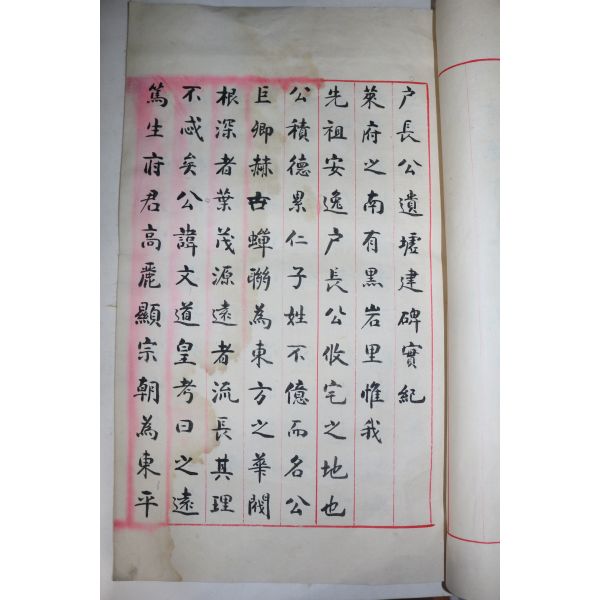 户長公遺墟建碑實紀
萊府之南有黑岩里惟我
先祖安逸户長公攸宅之地也
公積德累仁子姓不億而名公
巨卿赫古蟬聯為東方之華閥
根深者葉茂源遠者流長其理
不忒矣公諱文道皇考曰之遠
篤生府君高麗顯宗朝為東平